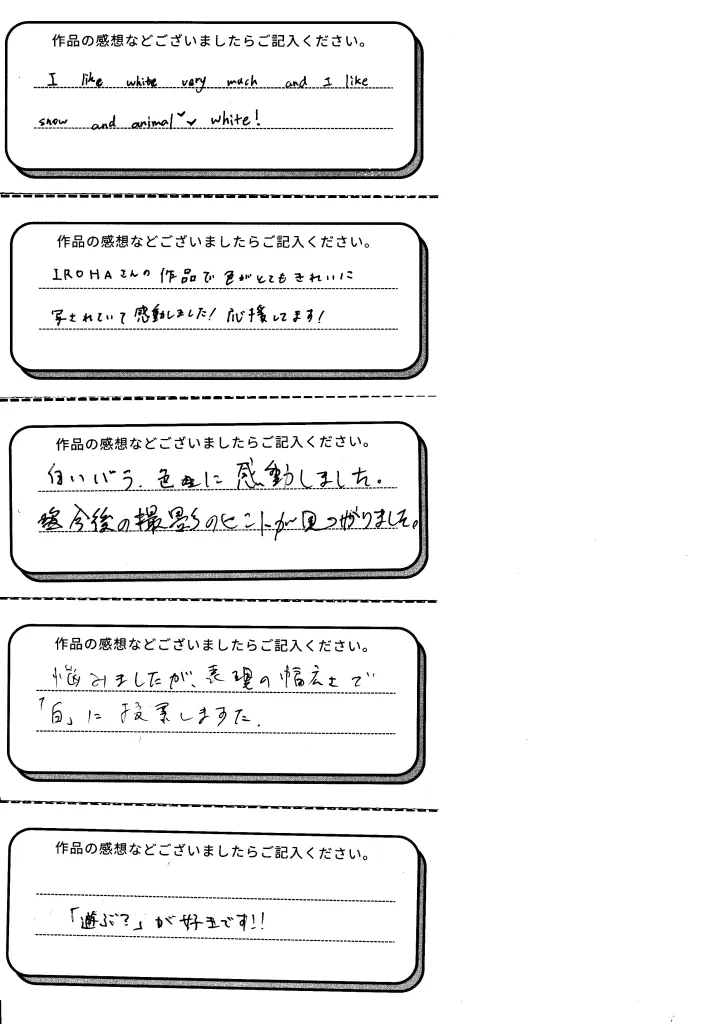 作品の感想などございましたらご記入ください。
I like white very much and I like
snow and animal white!
作品の感想などございましたらご記入ください。
IROHAさんの作品で色がとてもきれいに
写されていて感動しました!応援してます!
作品の感想などございましたらご記入ください。
白いバラ、色に感動しました。
今後の撮影のヒントが見つかりました。
作品の感想などございましたらご記入ください。
悩みましたが、表現の幅広さで
「白」に投票しました.
作品の感想などございましたらご記入ください。
「遊ぶ?」が好きです!!